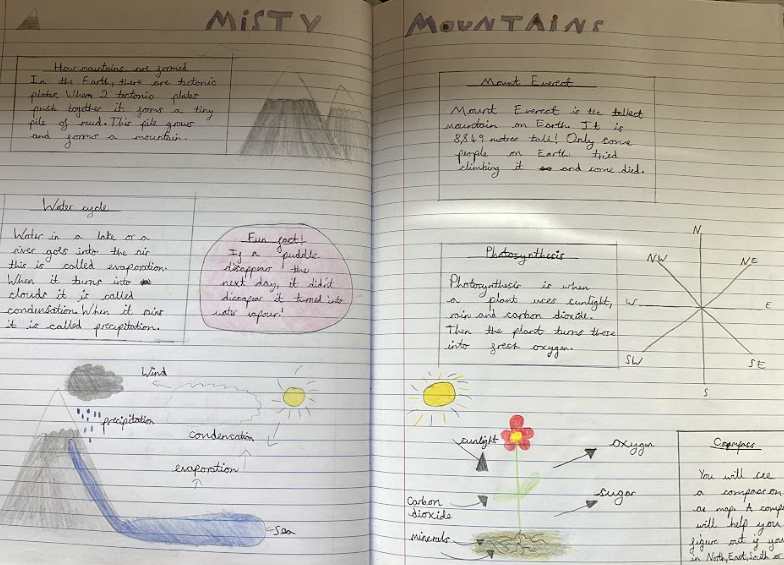 MiSTY MOUNTAiNS
How mountains are formed
In the Earth, there are tectonic
plates. When 2 tectonic plates
push together it forms a tiny
pile of mud. This pile grows
and forms a mountain.
Water cycle
Water in a lake or a
river gets into the air
this is called evaporation.
When it turns into
clouds it is called
condensation. When it rains
it is called precipitation.
Fun fact!
If a puddle
disappear the
next day, it didn't
disappear it turned into
water vapour!
Wind
precipitation
condensation
evaporation
Sea
Mount Everest
Mount Everest is the tallest
mountain on Earth. It is
8,849 metres tall! Only some
people on Earth tried
climbing it and some died.
Photosynthesis
Photosynthesis is when
a plant uses sunlight,
rain and carbon dioxide.
Then the plant turns those
into fresh oxygen.
N
NW
NE
W
E
SW
SE
S
sunlight
oxygen
Carbon
dioxide
sugar
minerals
Compass
You will see
a compass on
a map. A comp
will help you
figure out if you
in North, East, South or